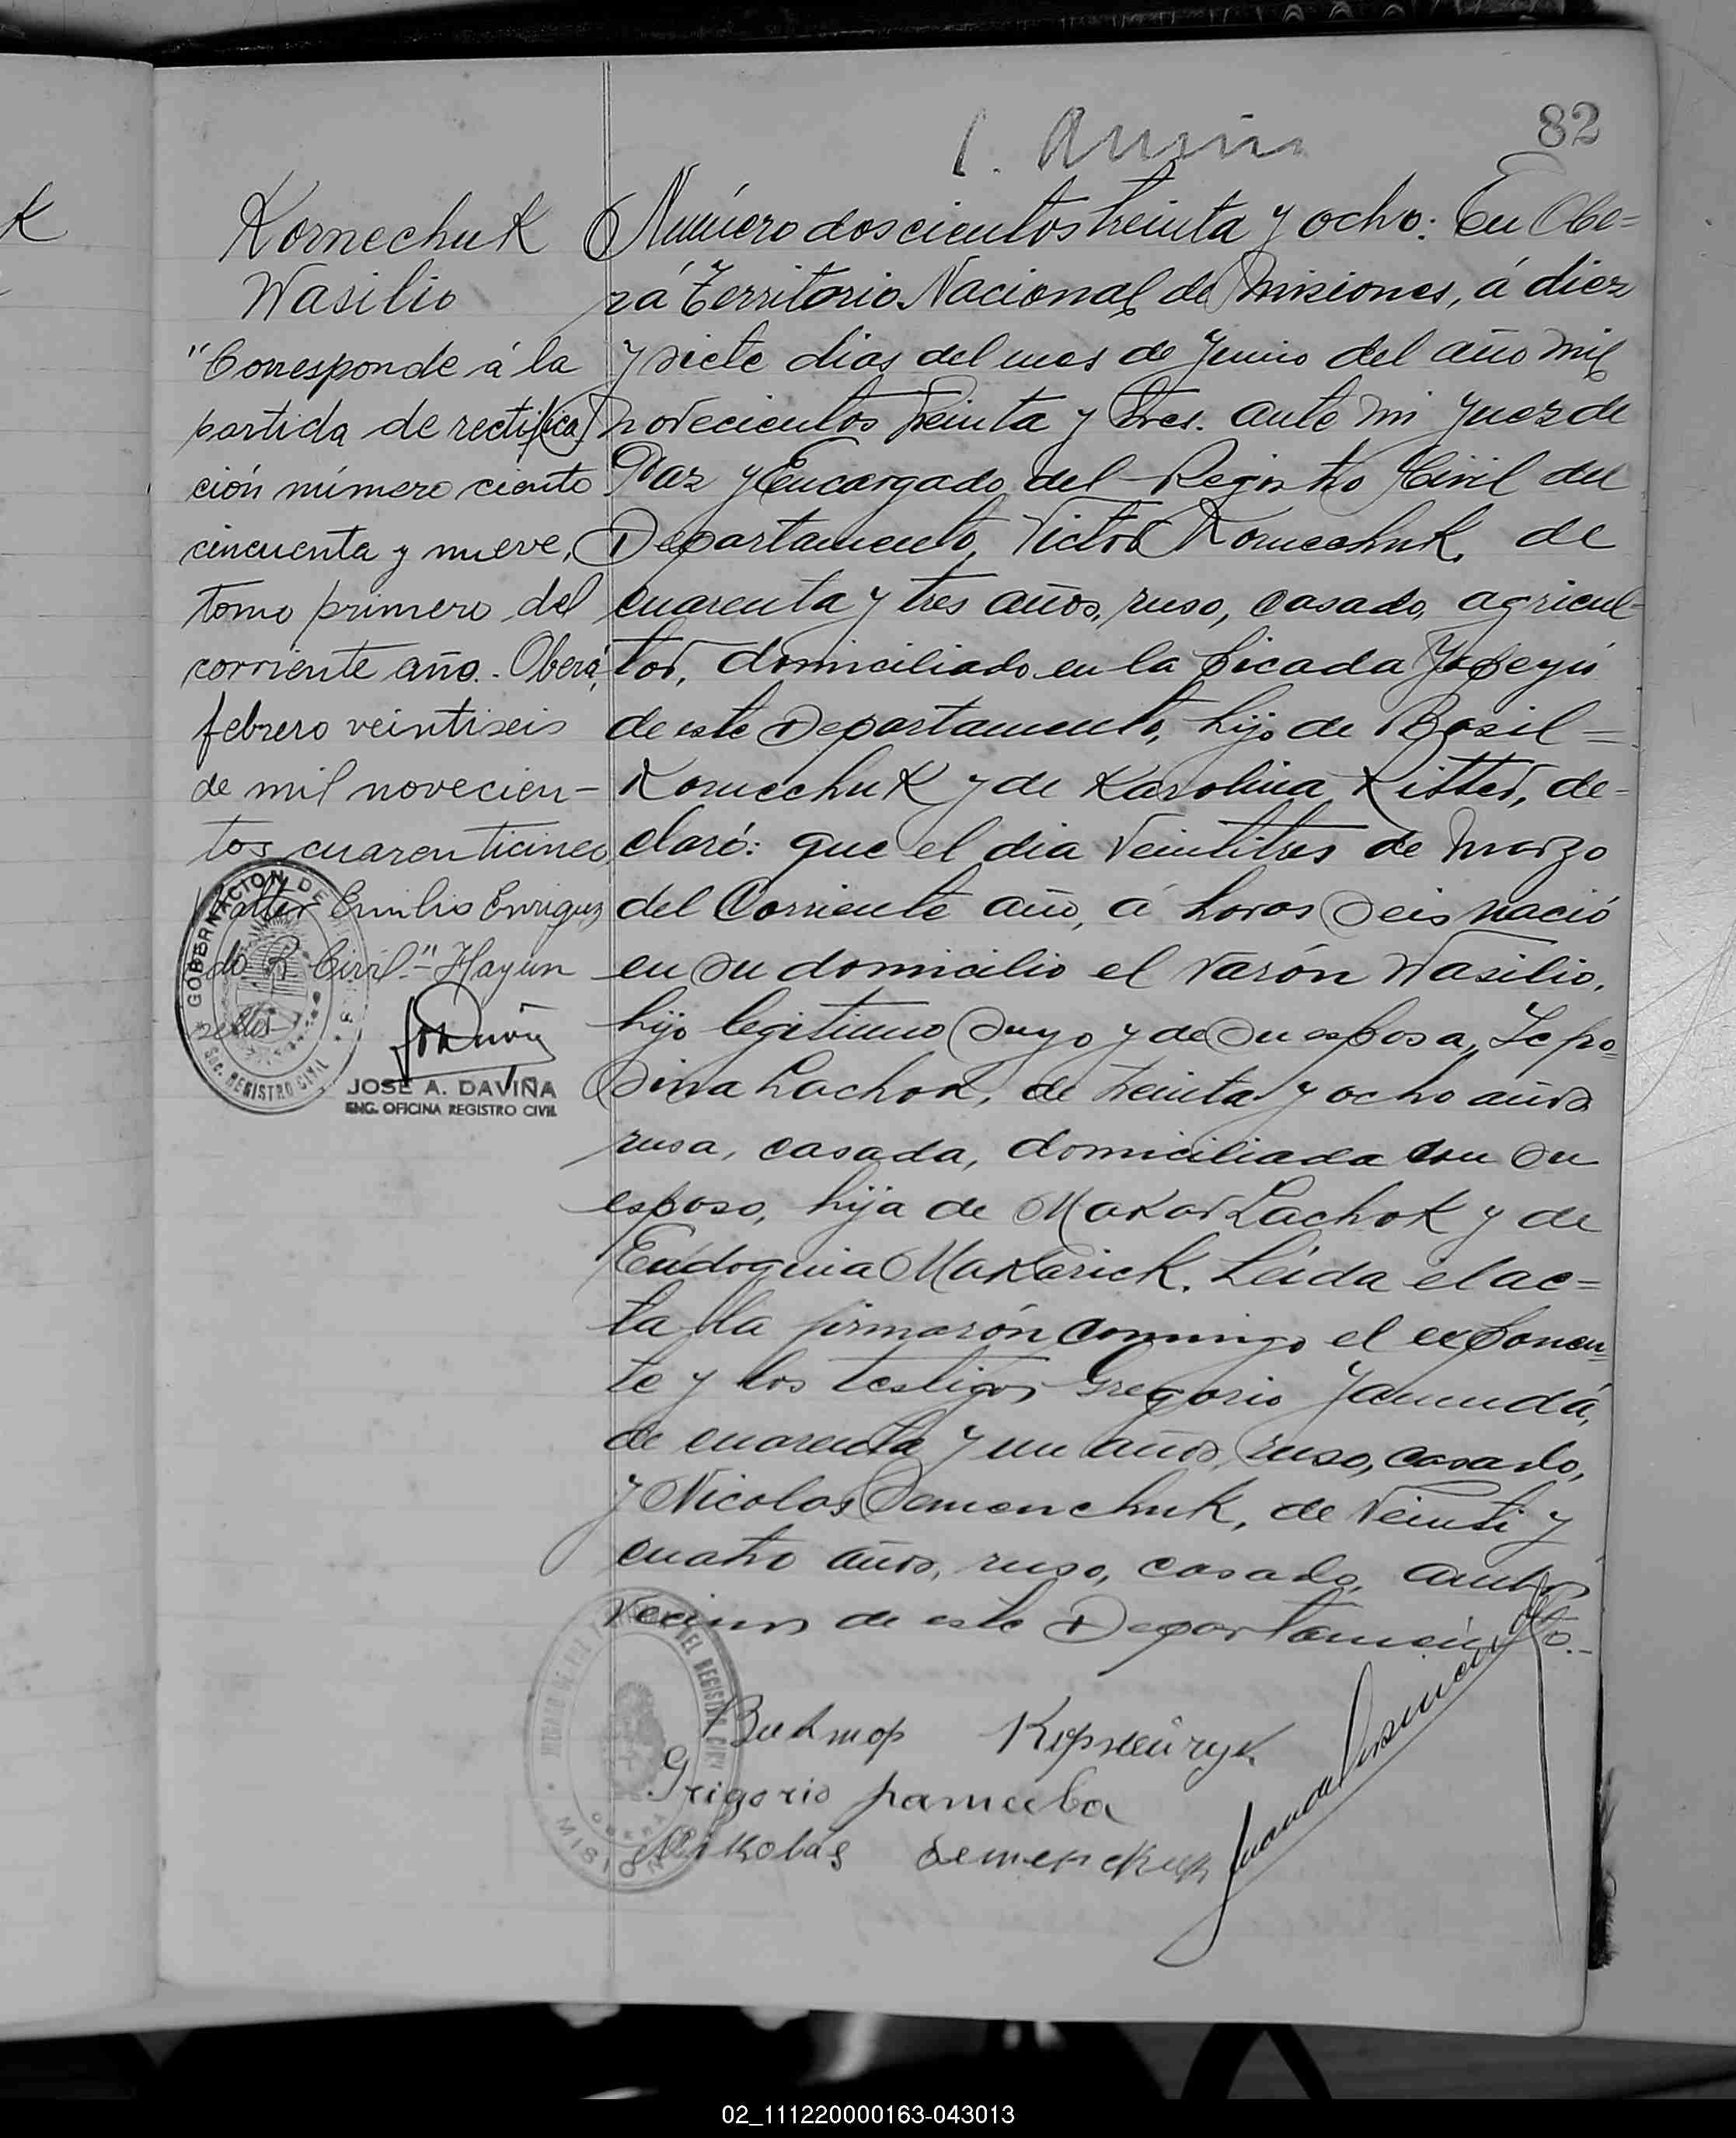 82
Kornechuk
Wasilio
"Corresponde á la
partida de rectifica
ción número ciento
cincuenta y nueve,
tomo primero del
corriente año.- Oberá,
febrero veintiseis
de mil novecien-
tos cuarenticinco
Emilio Enriquez
R. Civil."- Hay un
sello
GOBERNACION DE
SEC. REGISTRO CIVIL
JOSE A. DAVIÑA
ENC. OFICINA REGISTRO CIVIL
Número doscientos treinta y ocho: En Obe=
rá Territorio Nacional de Misiones, á diez
y siete dias del mes de Junio del año mil
novecientos treinta y tres. ante mi Juez de
Paz y Encargado del Registro Civil del
Departamento, Victor Kornechuk, de
cuarenta y tres años, ruso, casado, agricul-
tor, domiciliado en la Picada Yapeyú
de este Departamento, hijo de Basil=
Kornechuk y de Karolina Ritter, de-
claró: que el dia veintitres de Marzo
del Corriente año, á horas Seis nació
en su domicilio el varón Wasilio,
hijo legitimo Suyo y de Su esposa, Sepo-
Sina Lachok, de treinta y ocho años
rusa, casada, domiciliada con Su
esposo, hija de Makar Lachok y de
Eudoquia Makarick. Leida el ac=
ta, la firmarón conmigo el exponen-
te y los testigos Gregorio Yamudá,
de cuarenta y un años, ruso, casado,
y Nicolas Semenchuk, de veinti y
cuatro años, ruso, casado, ambos
vecinos de este Departamento.-
JUZGADO DE PAZ DEL REGISTRO CIVIL
OBERA
MISIONES
Виктор Корнейчук
Grigorio
Nikolas Semenchuk
02_111220000163-043013